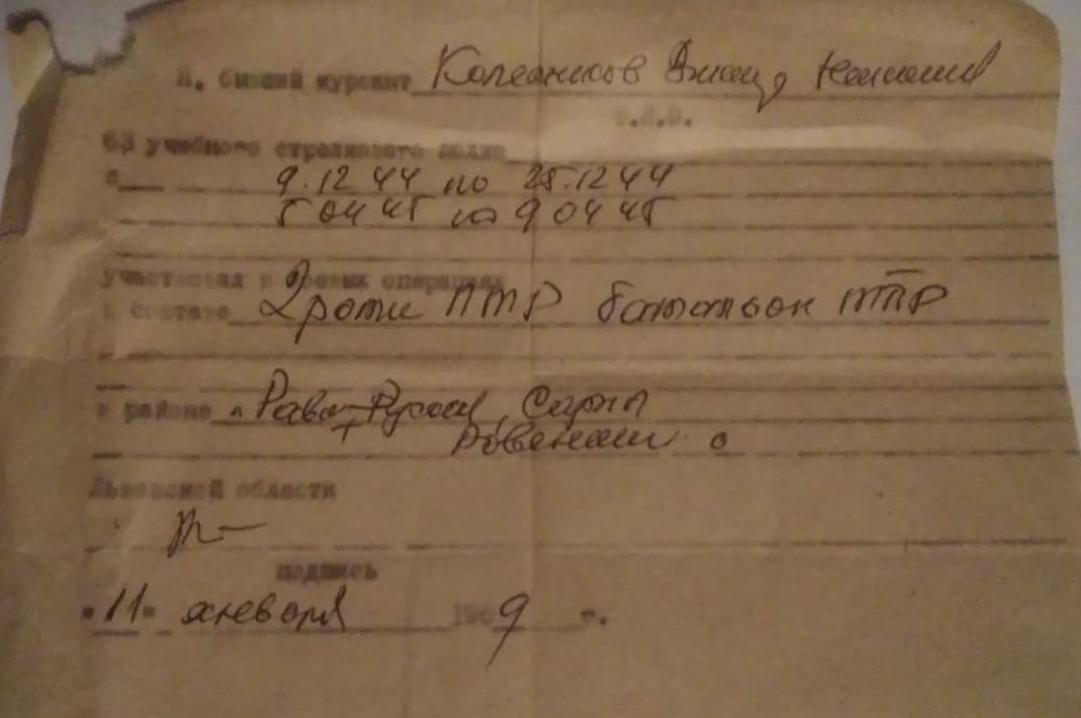 Я, бывший курсант Колесников
Ф.И.О.
63 учебного стрелкового полка
с 9.12 44 по 25.12 44
5 04 45 по 9 04 45
участвовал в боевых операциях
в составе 2 роти ПТР батальон ПТР
в районе Рава-Русск, Сарны
Ровенски о
Львовской области
подпись
"11" января 1969 г.